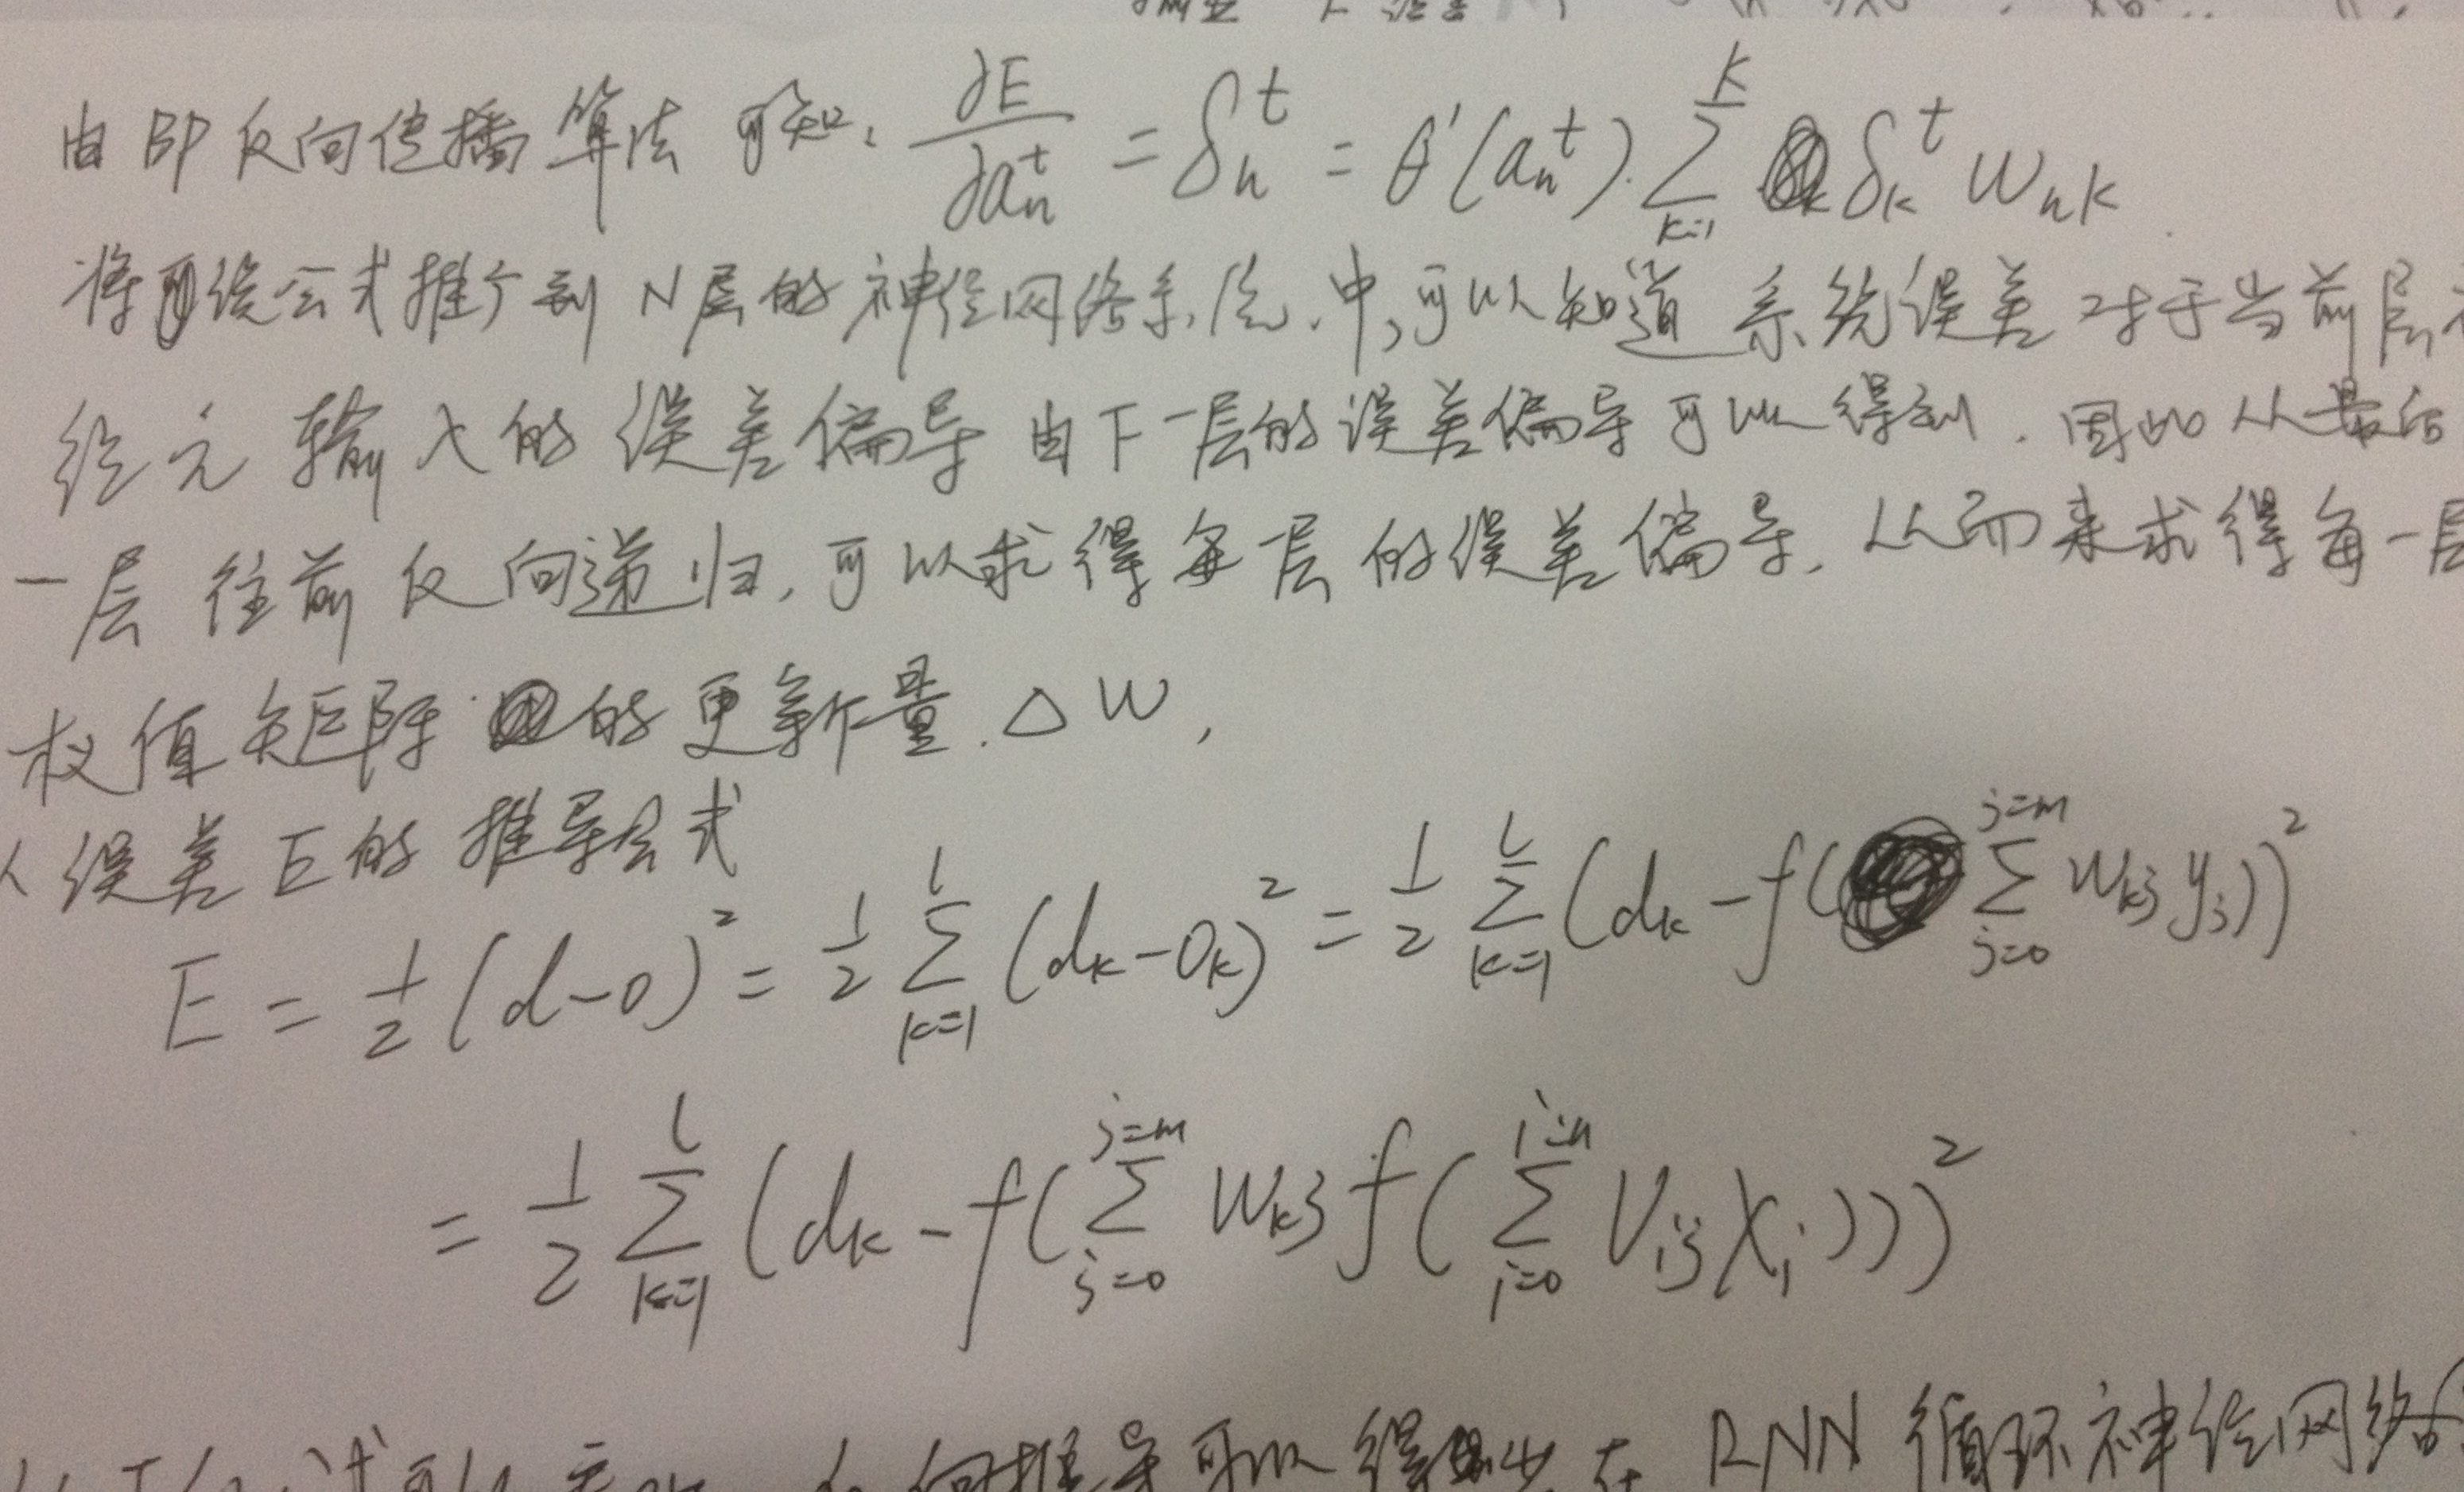 由BP反向传播算法可知: ∂E/∂aₙᵗ = δₙᵗ = θ'(aₙᵗ)·∑_{k=1}^{K} δₖᵗ w_{nk}
将该公式推广到N层的神经网络系统中,可以知道系统误差对于当前层
经元输入的误差偏导由下一层的误差偏导可以得到.因此从最后
一层往前反向递归,可以求得每一层的误差偏导,从而来求得每一层
权值矩阵的更新量.△W,
从误差E的推导公式
E = 1/2 (d-o)² = 1/2 ∑_{k=1}^{l} (dₖ-Oₖ)² = 1/2 ∑_{k=1}^{l} (dₖ-f(∑_{j=0}^{j=m} w_{kj} y_j))²
= 1/2 ∑_{k=1}^{l} (dₖ-f(∑_{j=0}^{j=m} w_{kj} f(∑_{i=0}^{i=n} V_{ij} X_i)))²
推导可以得出在 RNN 循环神经网络